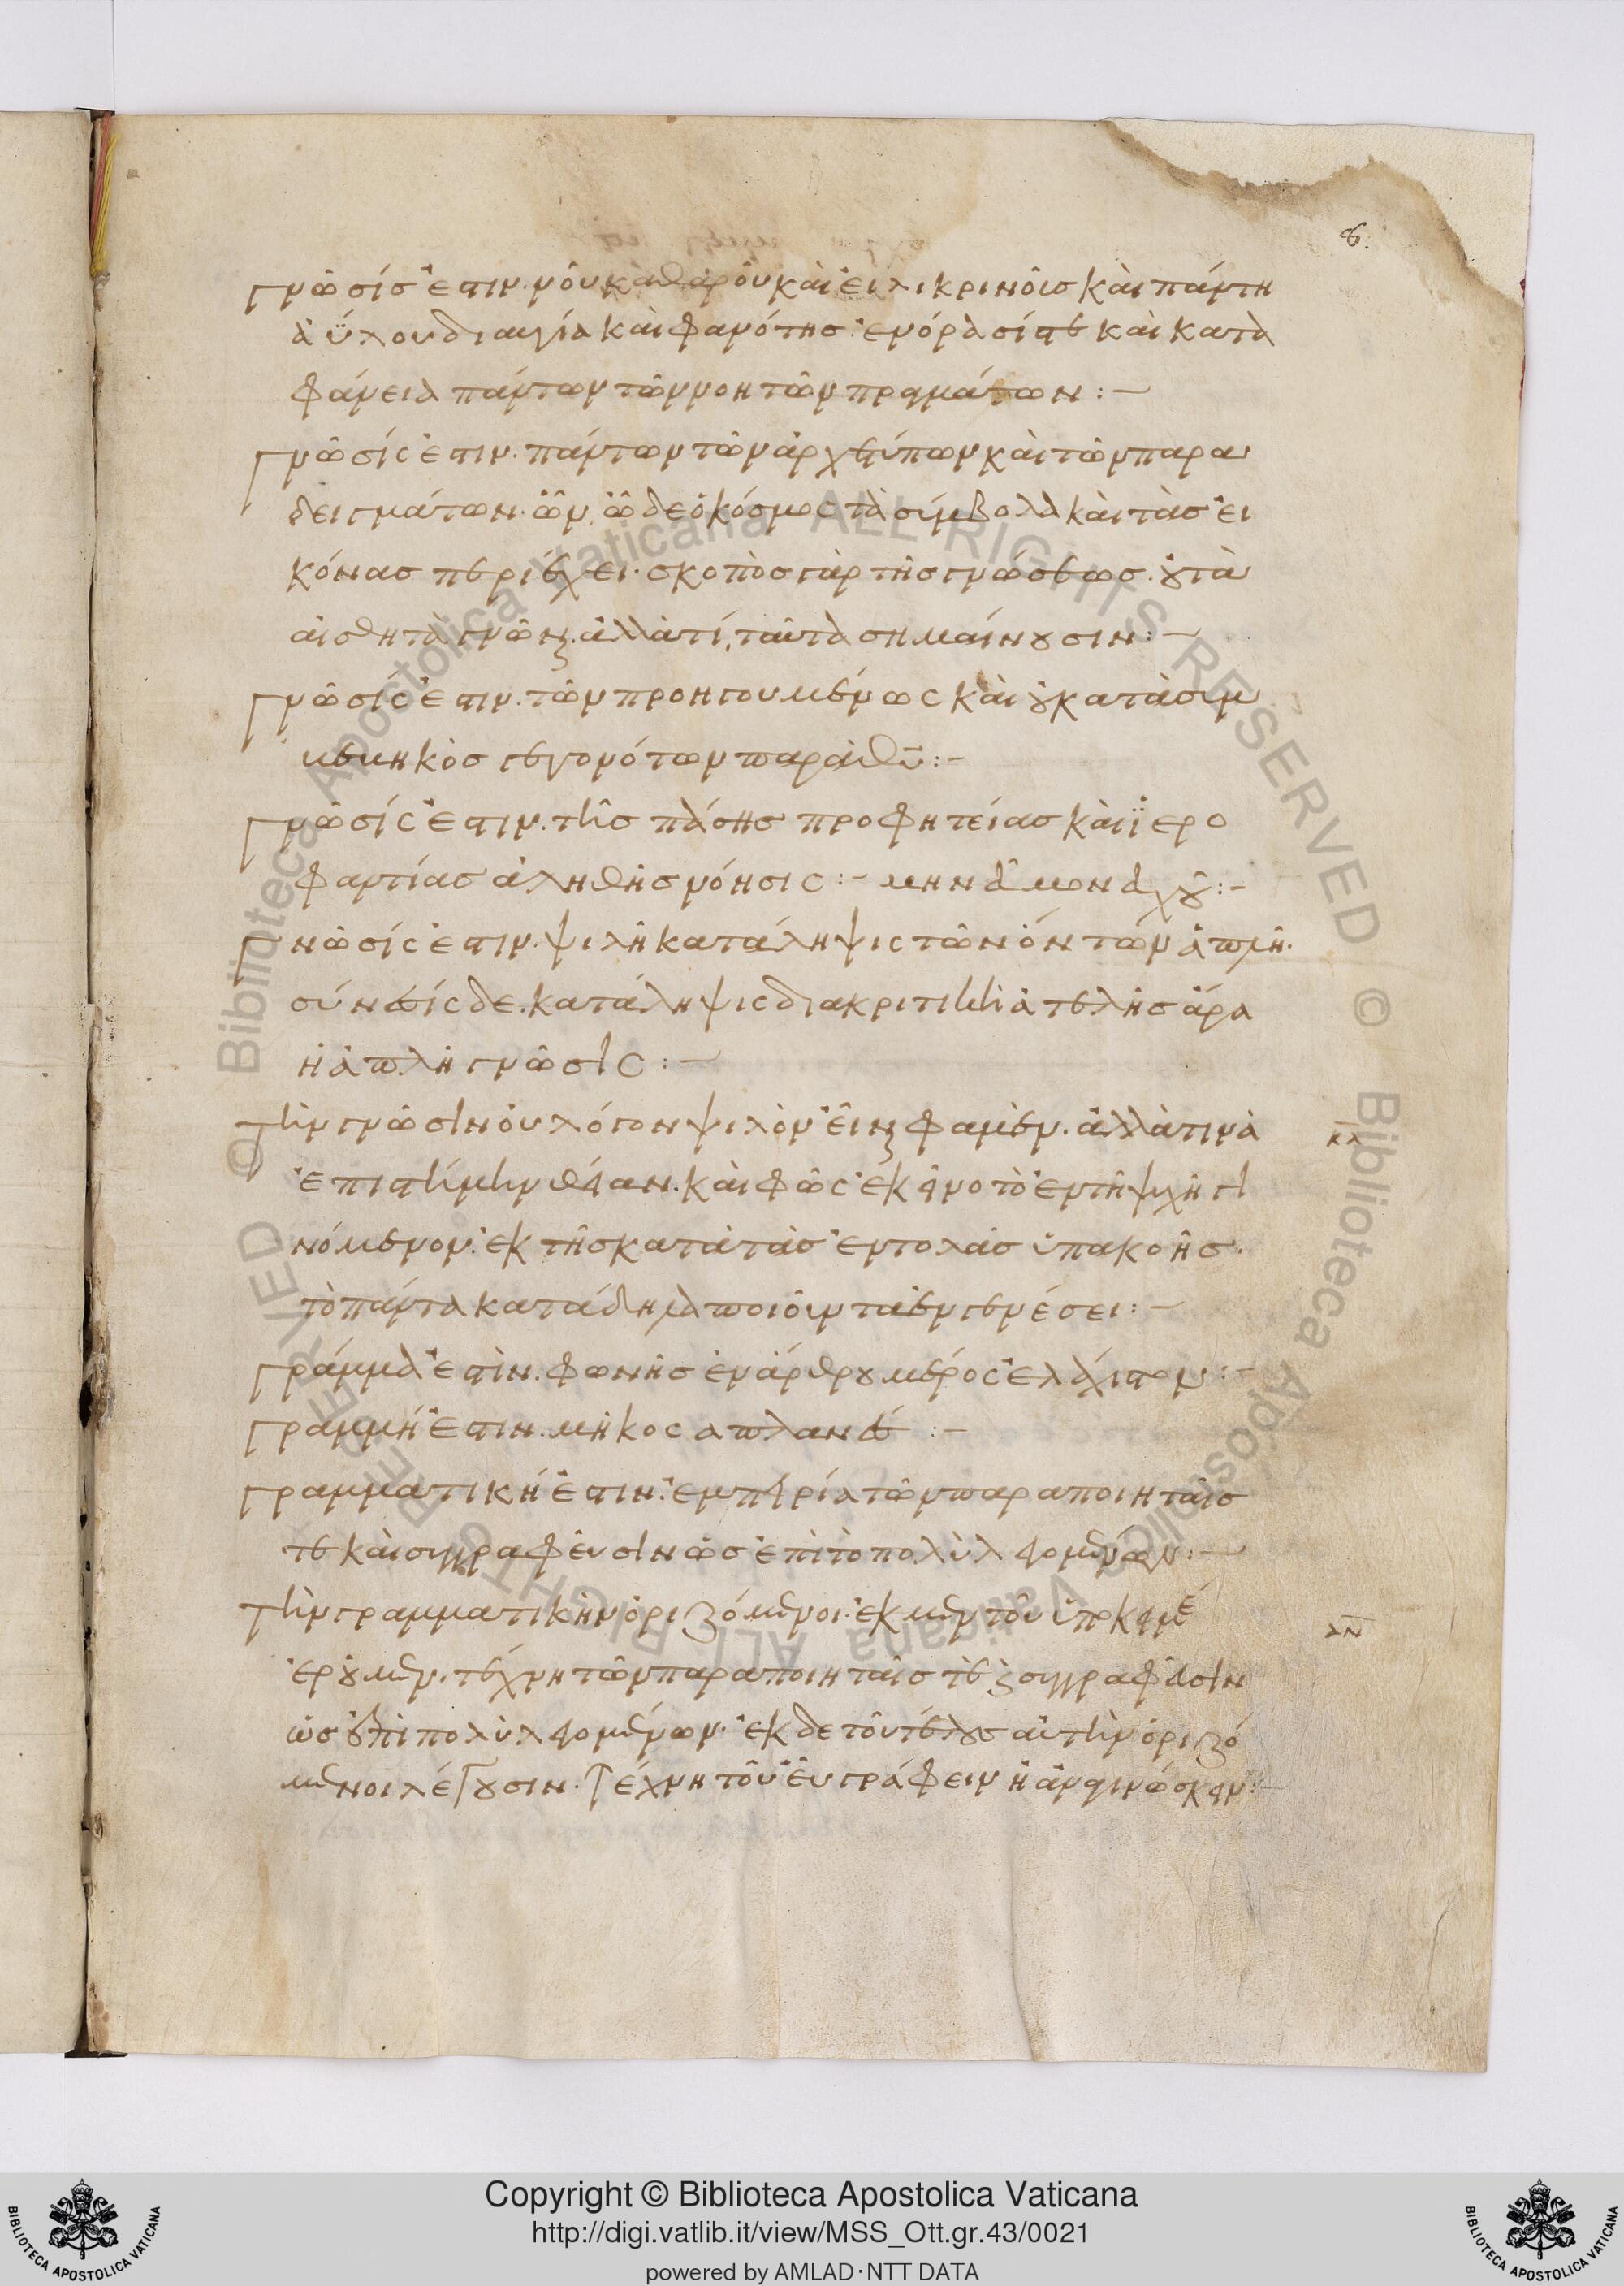 8.
γνῶσίς ἐστιν· νοῦ καθαροῦ καὶ εἰλικρινοῦς καὶ πάντη
ἀΰλου διαυγία καὶ φανότης· ἐνόρασίς τε καὶ κατα
φάνεια πάντων τῶν νοητῶν πραγμάτων :—
γνῶσίς ἐστιν· πάντων τῶν ἀρχετύπων καὶ τῶν παρα
δειγμάτων· ὧν, ὧδε ὁ κόσμος τὰ σύμβολα καὶ τὰς εἰ
κόνας περιέχει· σκοπὸς γὰρ τῆς γνώσεως· οὐ τὰ
αἰσθητὰ γνῶναι· ἀλλὰ τί, ταῦτα σημαίνουσιν :—
γνῶσίς ἐστιν· τῶν προηγουμένως καὶ οὐ κατὰ συμ
βεβηκὸς γεγονότων παρὰ θῡ :—
γνῶσίς ἐστιν· τῆς πάσης προφητείας καὶ ἱερο
φαντίας ἀληθὴς νόησις :— μηνᾶ μοναχοῦ :—
γνῶσίς ἐστιν· ψιλὴ κατάληψις τῶν ὄντων ἁπλῆ·
σύνεσις δε· κατάληψις διακριτικὴ ἀτελὴς ἄρα
ἡ ἁπλῆ γνῶσις :—
Τὴν γνῶσιν οὐ λόγον ψιλὸν εἶναι φαμέν· ἀλλὰ τινὰ
ἐπιστήμην θείαν· καὶ φῶς ἐκεῖνο τὸ ἐν τῆ ψυχῆ γι
νόμενον· ἐκ τῆς κατὰ τὰς ἐντολὰς ὑπακοῆς·
τὸ πάντα κατάδηλα ποιοῦν τὰ ἐν γενέσει :—
κλ
γράμμα ἐστὶν· φωνῆς ἐνάρθρου μέρος ἐλάχιστον :—
γραμμή ἐστιν· μῆκος απλατές :—
γραμματική ἐστιν· ἐμπειρία τῶν παρα ποιηταῖς
τε καὶ συγγραφεῦσιν ὡς ἐπὶ τὸ πολὺ λεγομένων :—
Τὴν γραμματικὴν ὁριζόμενοι· ἐκ μὲν τοῦ ὑποκειμέ
ἐροῦμεν· τέχνη τῶν παρα ποιηταῖς τὲ καὶ συγγραφεῦσιν
ὡς ἐπὶ πολὺ λεγομένων· ἐκ δε τοῦ τέλους αὐτὴν ὁριζό
μενοι λέγουσιν· Τέχνη τοῦ εὖ γράφειν ἢ ἀναγινώσκειν :—
αν
Copyright © Biblioteca Apostolica Vaticana
http://digi.vatlib.it/view/MSS_Ott.gr.43/0021
powered by AMLAD·NTT DATA